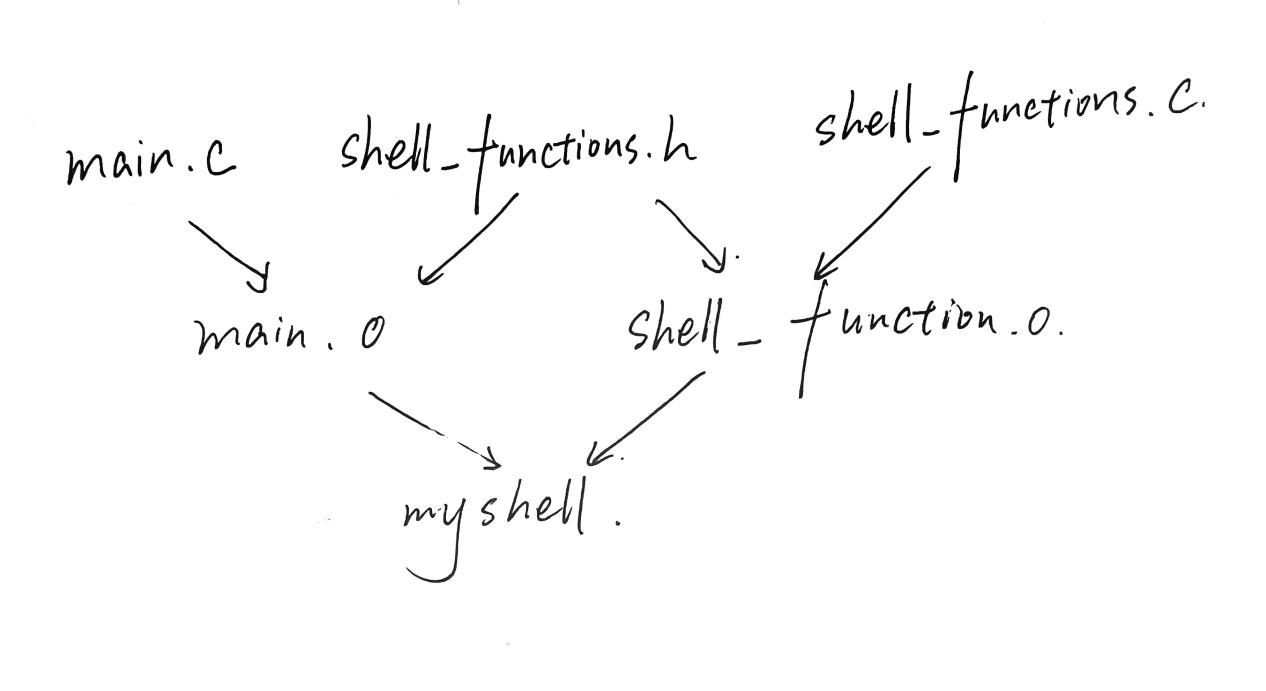 main.c shell_functions.h shell_functions.c.
main.o shell_function.o.
myshell.